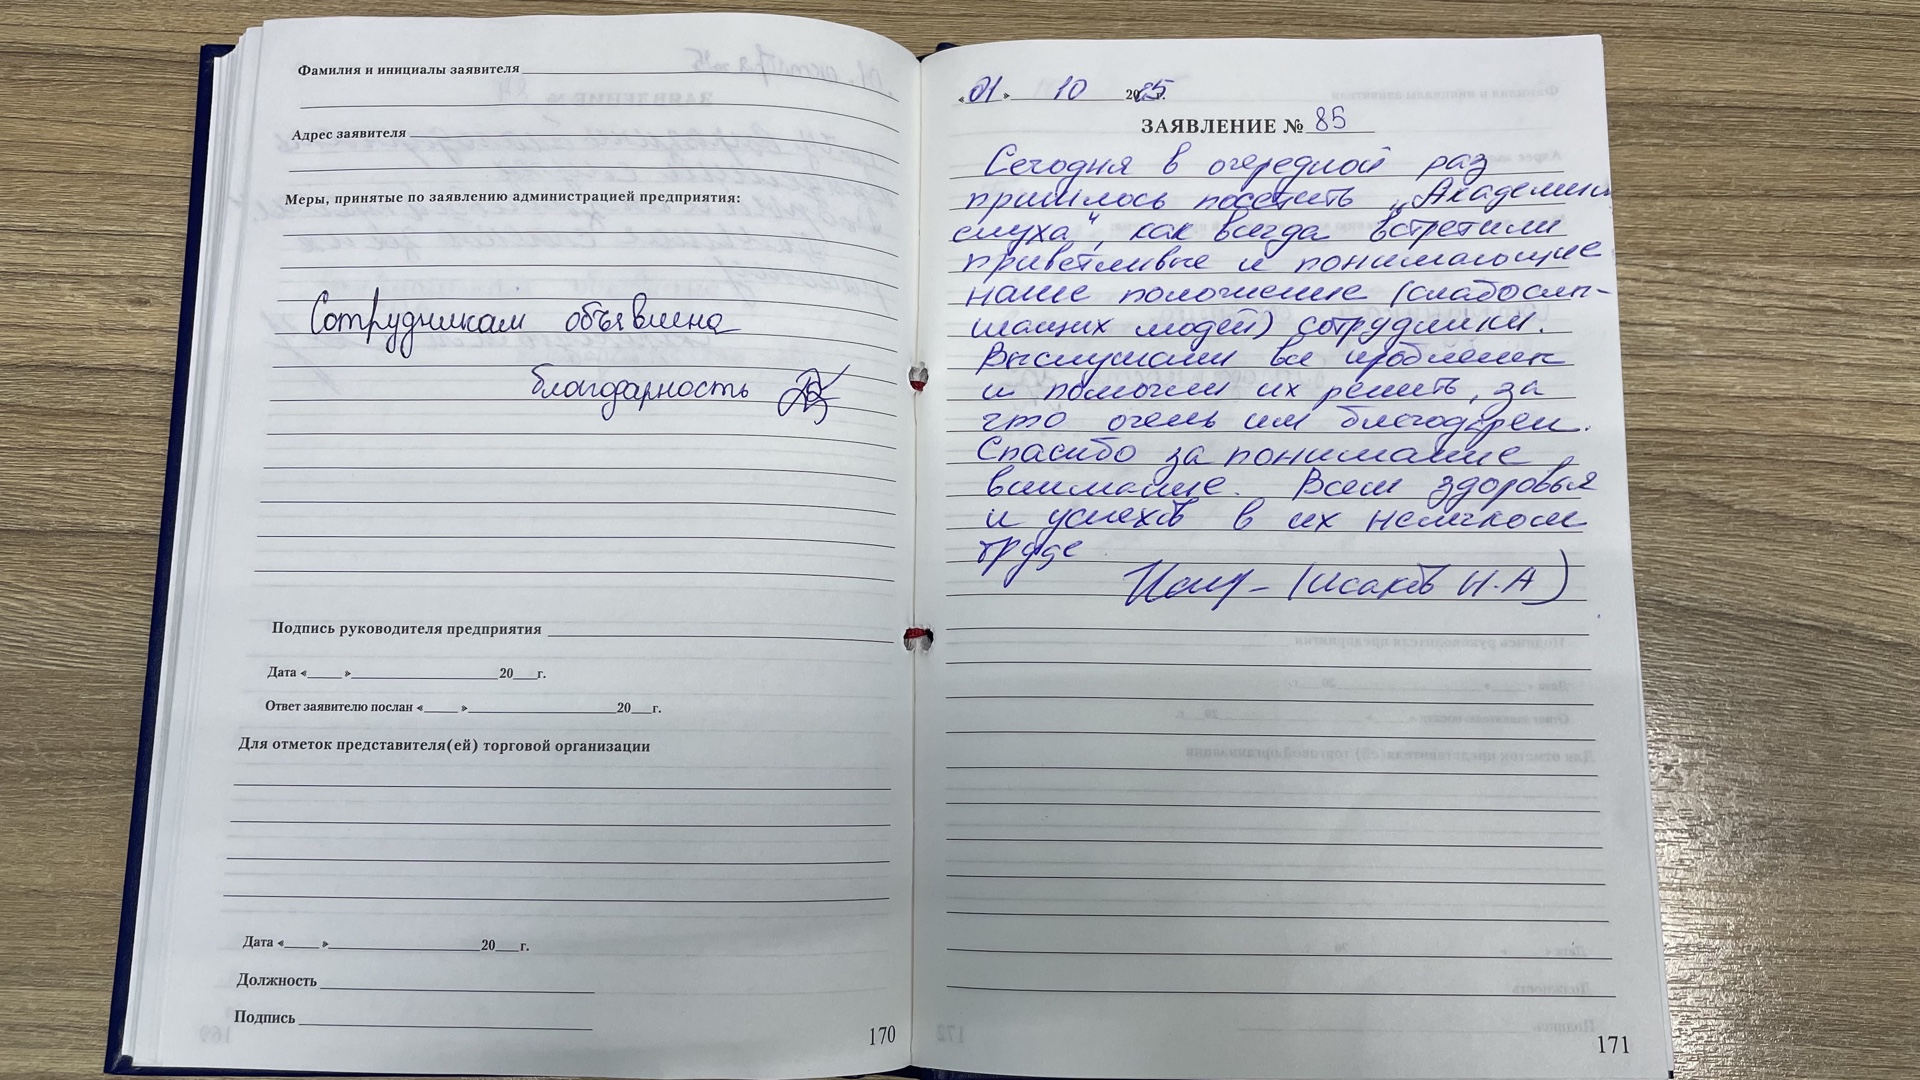 Фамилия и инициалы заявителя
Адрес заявителя
Меры, принятые по заявлению администрацией предприятия:
Сотрудникам объявлена
благодарность
Подпись руководителя предприятия
Дата «____ »____________20___г.
Ответ заявителю послан «____ »____________20___г.
Для отметок представителя(ей) торговой организации
Дата «____ »____________20___г.
Должность
Подпись
170
«01» 10 2025г.
ЗАЯВЛЕНИЕ № 85
Сегодня в очередной раз
пришлось посетить „Академию
слуха", как всегда встретили
приветливые и понимающие
наше положение (слабослы-
шащих людей) сотрудники.
Выслушали все проблемы
и помогли их решить, за
что очень им благодарен.
Спасибо за понимание,
внимание. Всем здоровья
и успехов в их нелегком
труде
(Исаков Н.А)
171